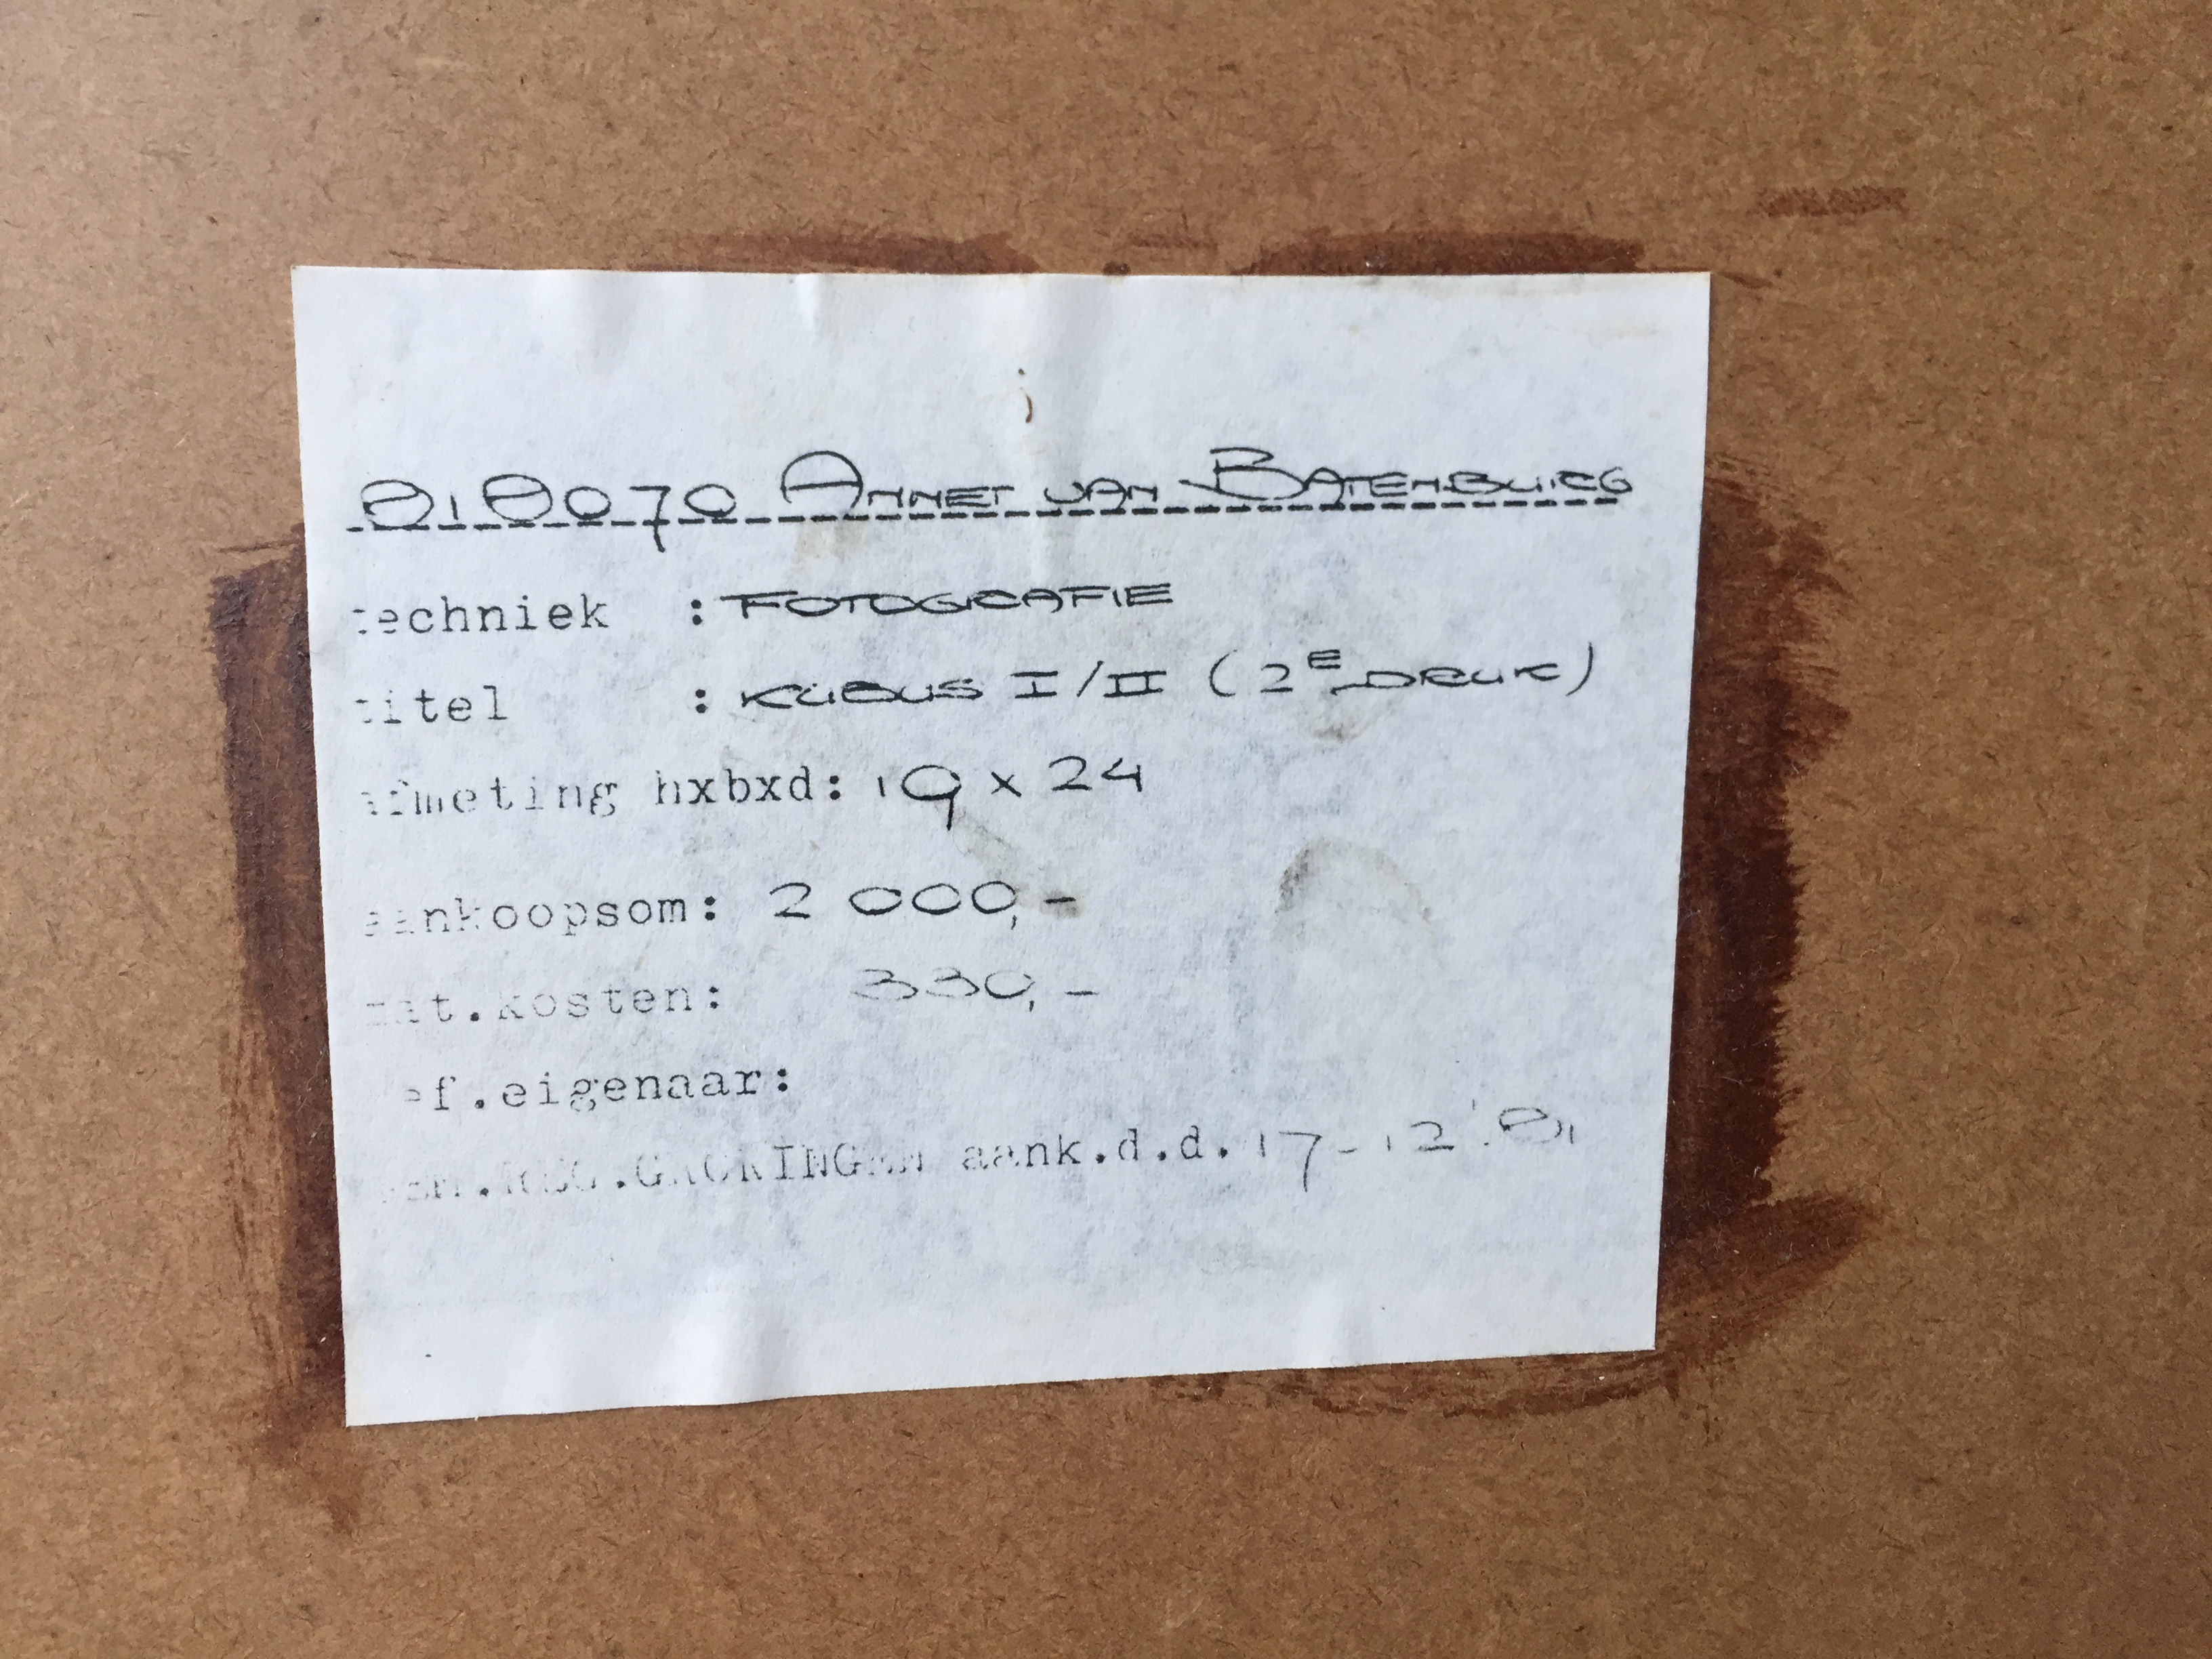 818070 ANNET VAN BATENBURG
techniek : FOTOGRAFIE
titel : KUBUS I/II (2E DRUK)
afmeting hxbxd: 19 x 24
aankoopsom: 2 000,-
mat.kosten: 330,-
ef.eigenaar:
GRONINGEN aank.d.d. 17-12'81